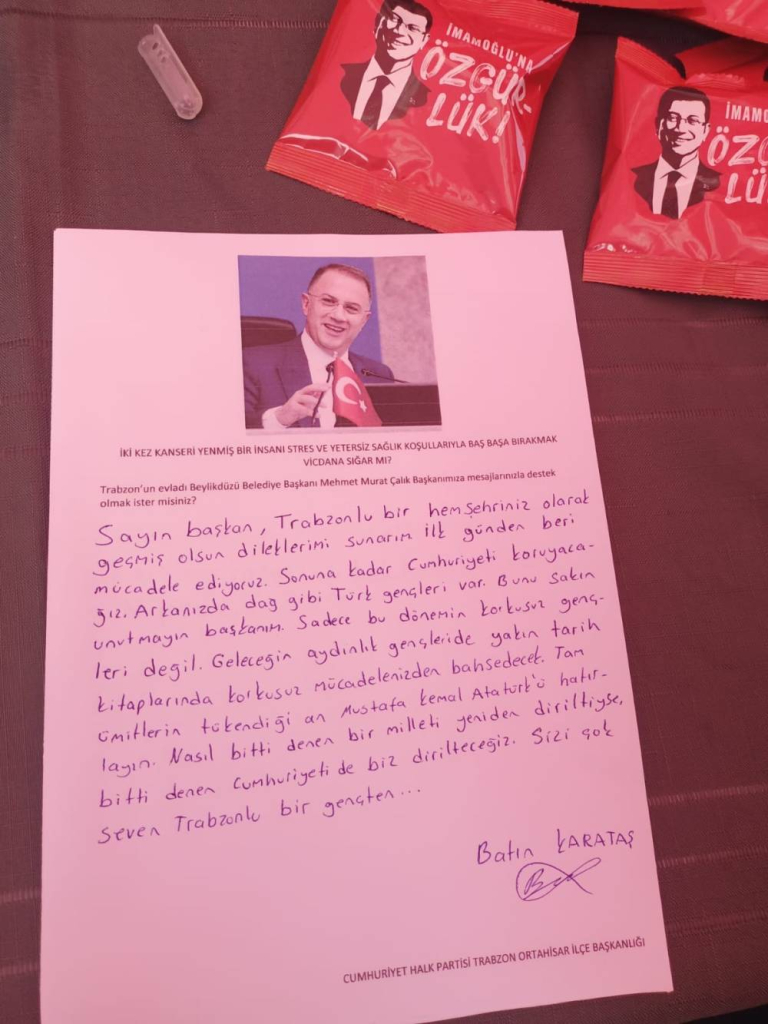 İMAMOĞLU'NA
ÖZGÜR-
LÜK!
İMAMO
ÖZG
LÜ
İKİ KEZ KANSERİ YENMİŞ BİR İNSANI STRES VE YETERSİZ SAĞLIK KOŞULLARIYLA BAŞ BAŞA BIRAKMAK
VİCDANA SIĞAR MI?
Trabzon'un evladı Beylikdüzü Belediye Başkanı Mehmet Murat Çalık Başkanımıza mesajlarınızla destek
olmak ister misiniz?
Sayın başkan, Trabzonlu bir hemşehriniz olarak
geçmiş olsun dileklerimi sunarım ilk günden beri
mücadele ediyoruz. Sonuna kadar Cumhuriyeti koruyaca-
ğız. Arkanızda dağ gibi Türk gençleri var. Bunu sakın
unutmayın başkanım. Sadece bu dönemin korkusuz genç-
leri değil. Geleceğin aydınlık gençleride yakın tarih
kitaplarında korkusuz mücadelenizden bahsedecek. Tam
ümitlerin tükendiği an Mustafa Kemal Atatürk'ü hatır-
layın. Nasıl bitti denen bir milleti yeniden dirilttiyse,
bitti denen Cumhuriyeti de biz dirilteceğiz. Sizi çok
seven Trabzonlu bir gençten...
Batın KARATAŞ
CUMHURİYET HALK PARTİSİ TRABZON ORTAHİSAR İLÇE BAŞKANLIĞI